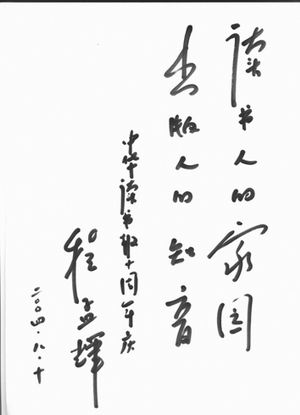 读书人的家园
出版人的知音
中华读书报十周年庆
程孟辉
二〇〇四.八.十